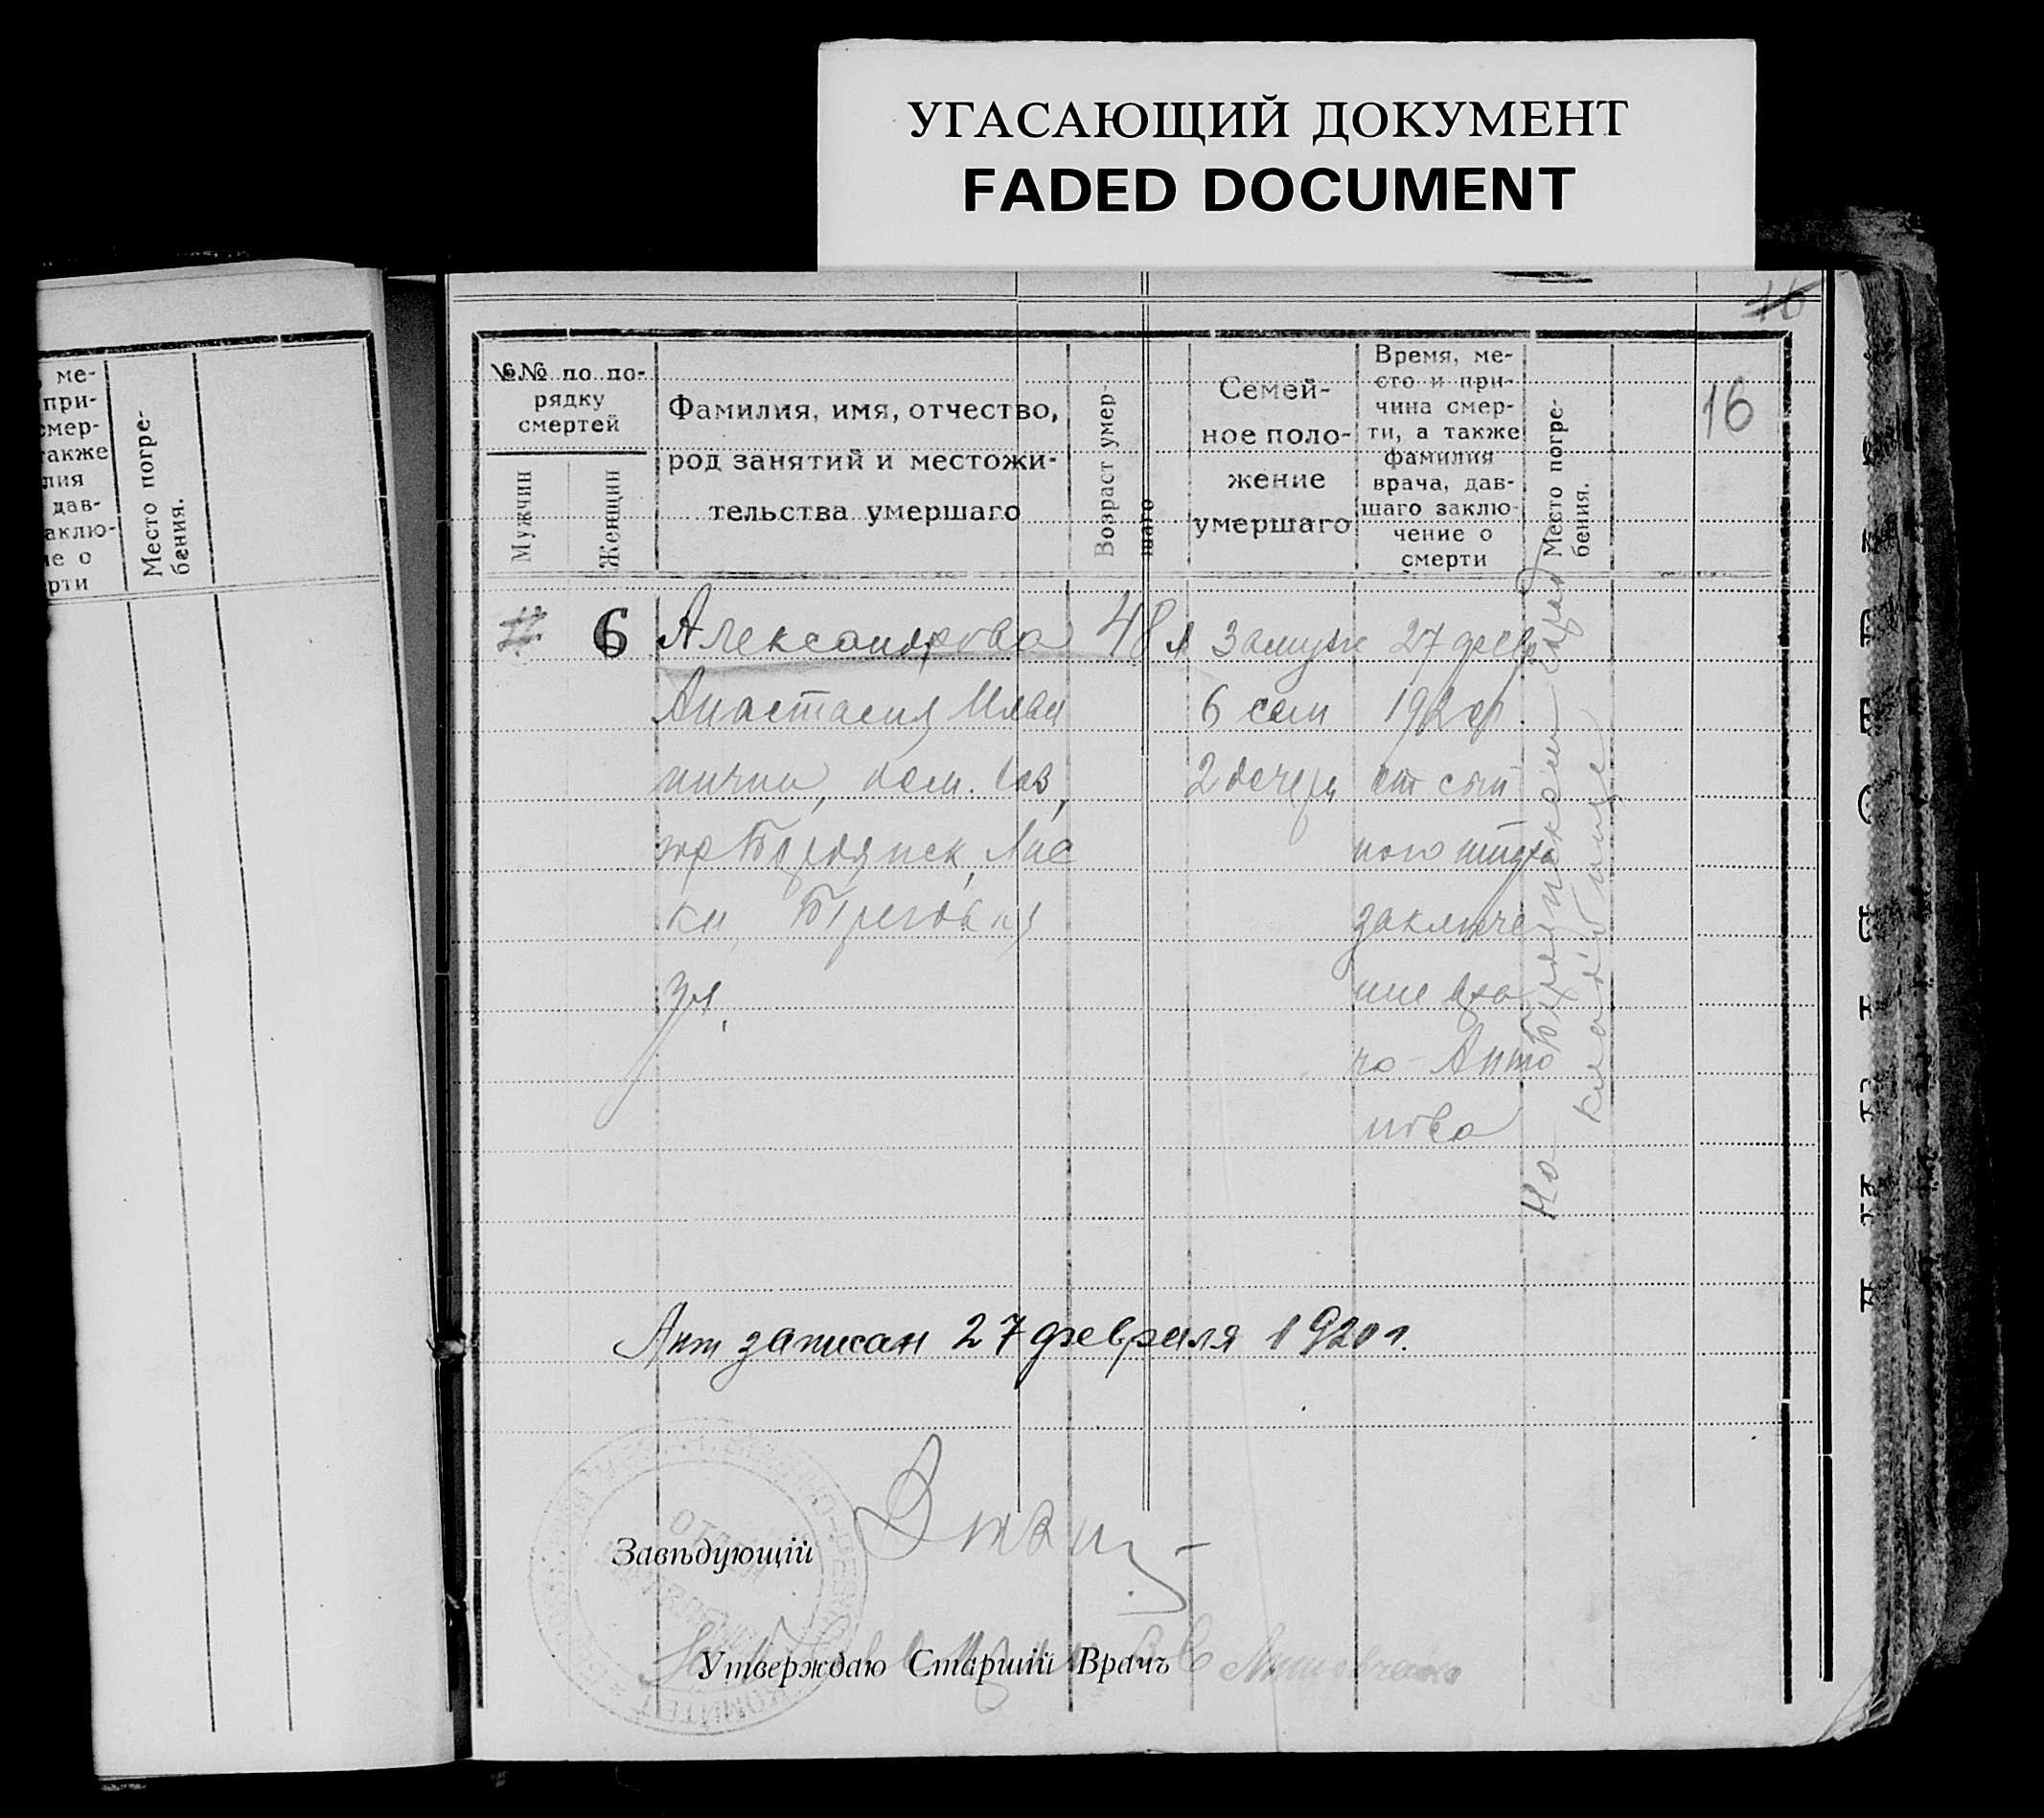 УГАСАЮЩИЙ ДОКУМЕНТ
FADED DOCUMENT
ме-
при-
смер-
также
лия
дав-
аклю-
ие о
рти
Место погре-
бения.
16
16
№№ по по-
рядку
смертей
Мужчин
Женщин
Фамилия, имя, отчество,
род занятий и местожи-
тельства умершаго
Возраст умер-
шаго
Семей-
ное поло-
жение
умершаго
Время, ме-
сто и при-
чина смер-
ти, а также
фамилия
врача, дав-
шаго заклю-
чение о
смерти
Место погре-
бения.
6
Александрова
Анастасия Иван
Бердянск, Лис
ки,
ул.
48 л
Замуж
6 сын
2 дочери
27 февр
1920г.
от сып
ного тифа
заключе
ние вра
ча Анто
нова
На
кладбище
Акт записан 27 февраля 1920 г.
Завѣдующій
Утверждаю Старшій Врачъ